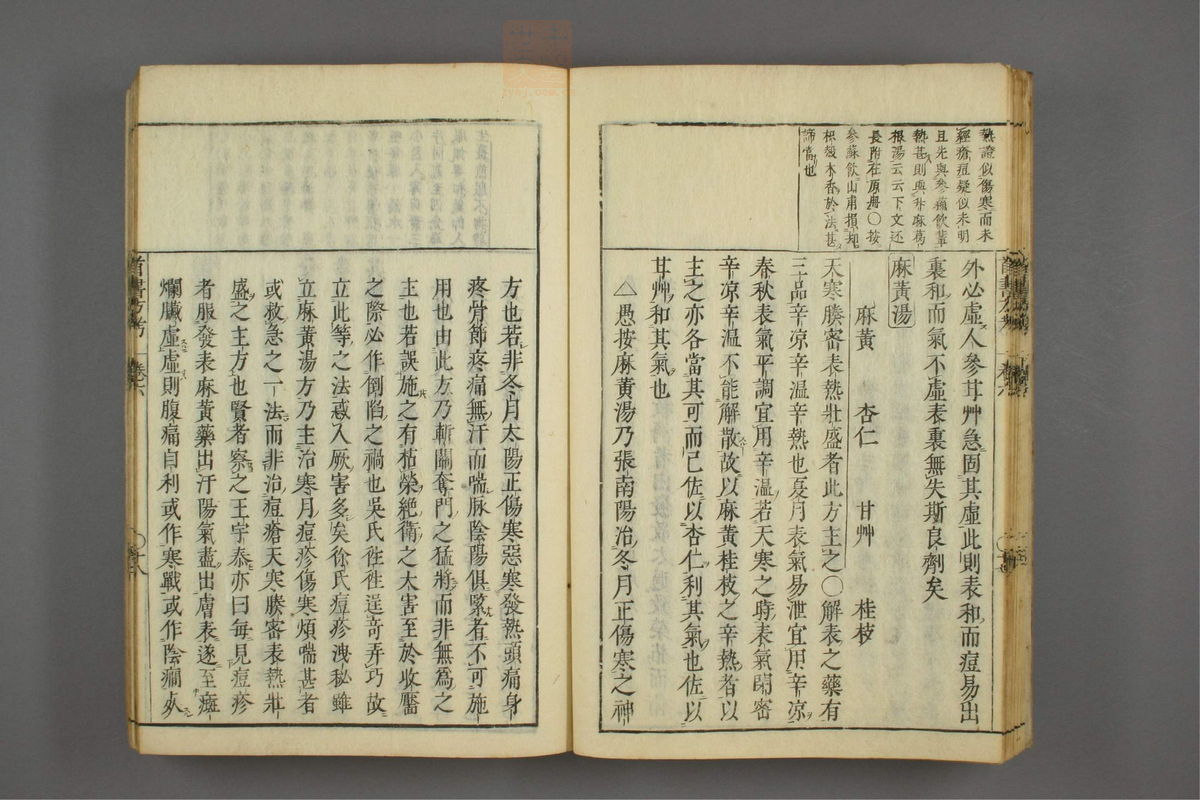 熱證似傷寒而未
經瘡痘疑似未明
且先與參蘇飲輩
熱甚則與升麻葛
根湯云云下文还
長附在原册〇按
參蘇飲山甫損却
枳殼木香於法甚
諦當也
外必虛人參芪艸急固其虛此則表和而痘易出
裏和而氣不虛表裏無失斯良劑矣
麻黃湯
麻黃 杏仁 甘艸 桂枝
天寒腠密表熱壯盛者此方主之〇解表之藥有
三品辛凉辛温辛熱也夏月表氣易泄宜用辛凉
春秋表氣平調宜用辛温若天寒之時表氣閉密
辛凉辛温不能解散故以麻黃桂枝之辛熱者以
主之亦各當其可而已佐以杏仁利其氣也佐以
甘艸和其氣也
△愚按麻黃湯乃張南陽治冬月正傷寒之神
方也若非冬月太陽正傷寒惡寒發熱頭痛身
疼骨節疼痛無汗而喘脉陰陽俱緊者不可施
用也由此方乃斬關奪門之猛將而非無爲之
主也若誤施之有枯榮絶衛之大害至於收靨
之際必作倒陷之禍也吳氏徃徃逞奇弄巧故
立此等之法惑入厥害多矣徐氏痘疹洩秘雖
立麻黃湯方乃主治寒月痘疹傷寒煩喘甚者
或救急之一法而非治痘瘡天寒腠密表熱壯
盛之主方也賢者察之王宇泰亦曰每見痘疹
者服發表麻黃藥出汗陽氣盡出膚表遂至癍
爛臟虛虛則腹痛自利或作寒戰或作陰癎死
卷六
十八